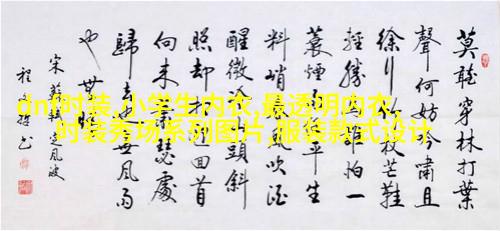 dnf时装,小学生内衣,最透明内衣,
时装秀场系列图片,服装款式设计
莫聽穿林打葉
聲何妨吟嘯且
徐行杖芒鞋
輕勝馬誰怕一
蓑煙平生
料峭吹酒
醒微冷頭斜
照却相迎回首
向来瑟處
歸去無風雨
也無
宋蘇軾定風波
程